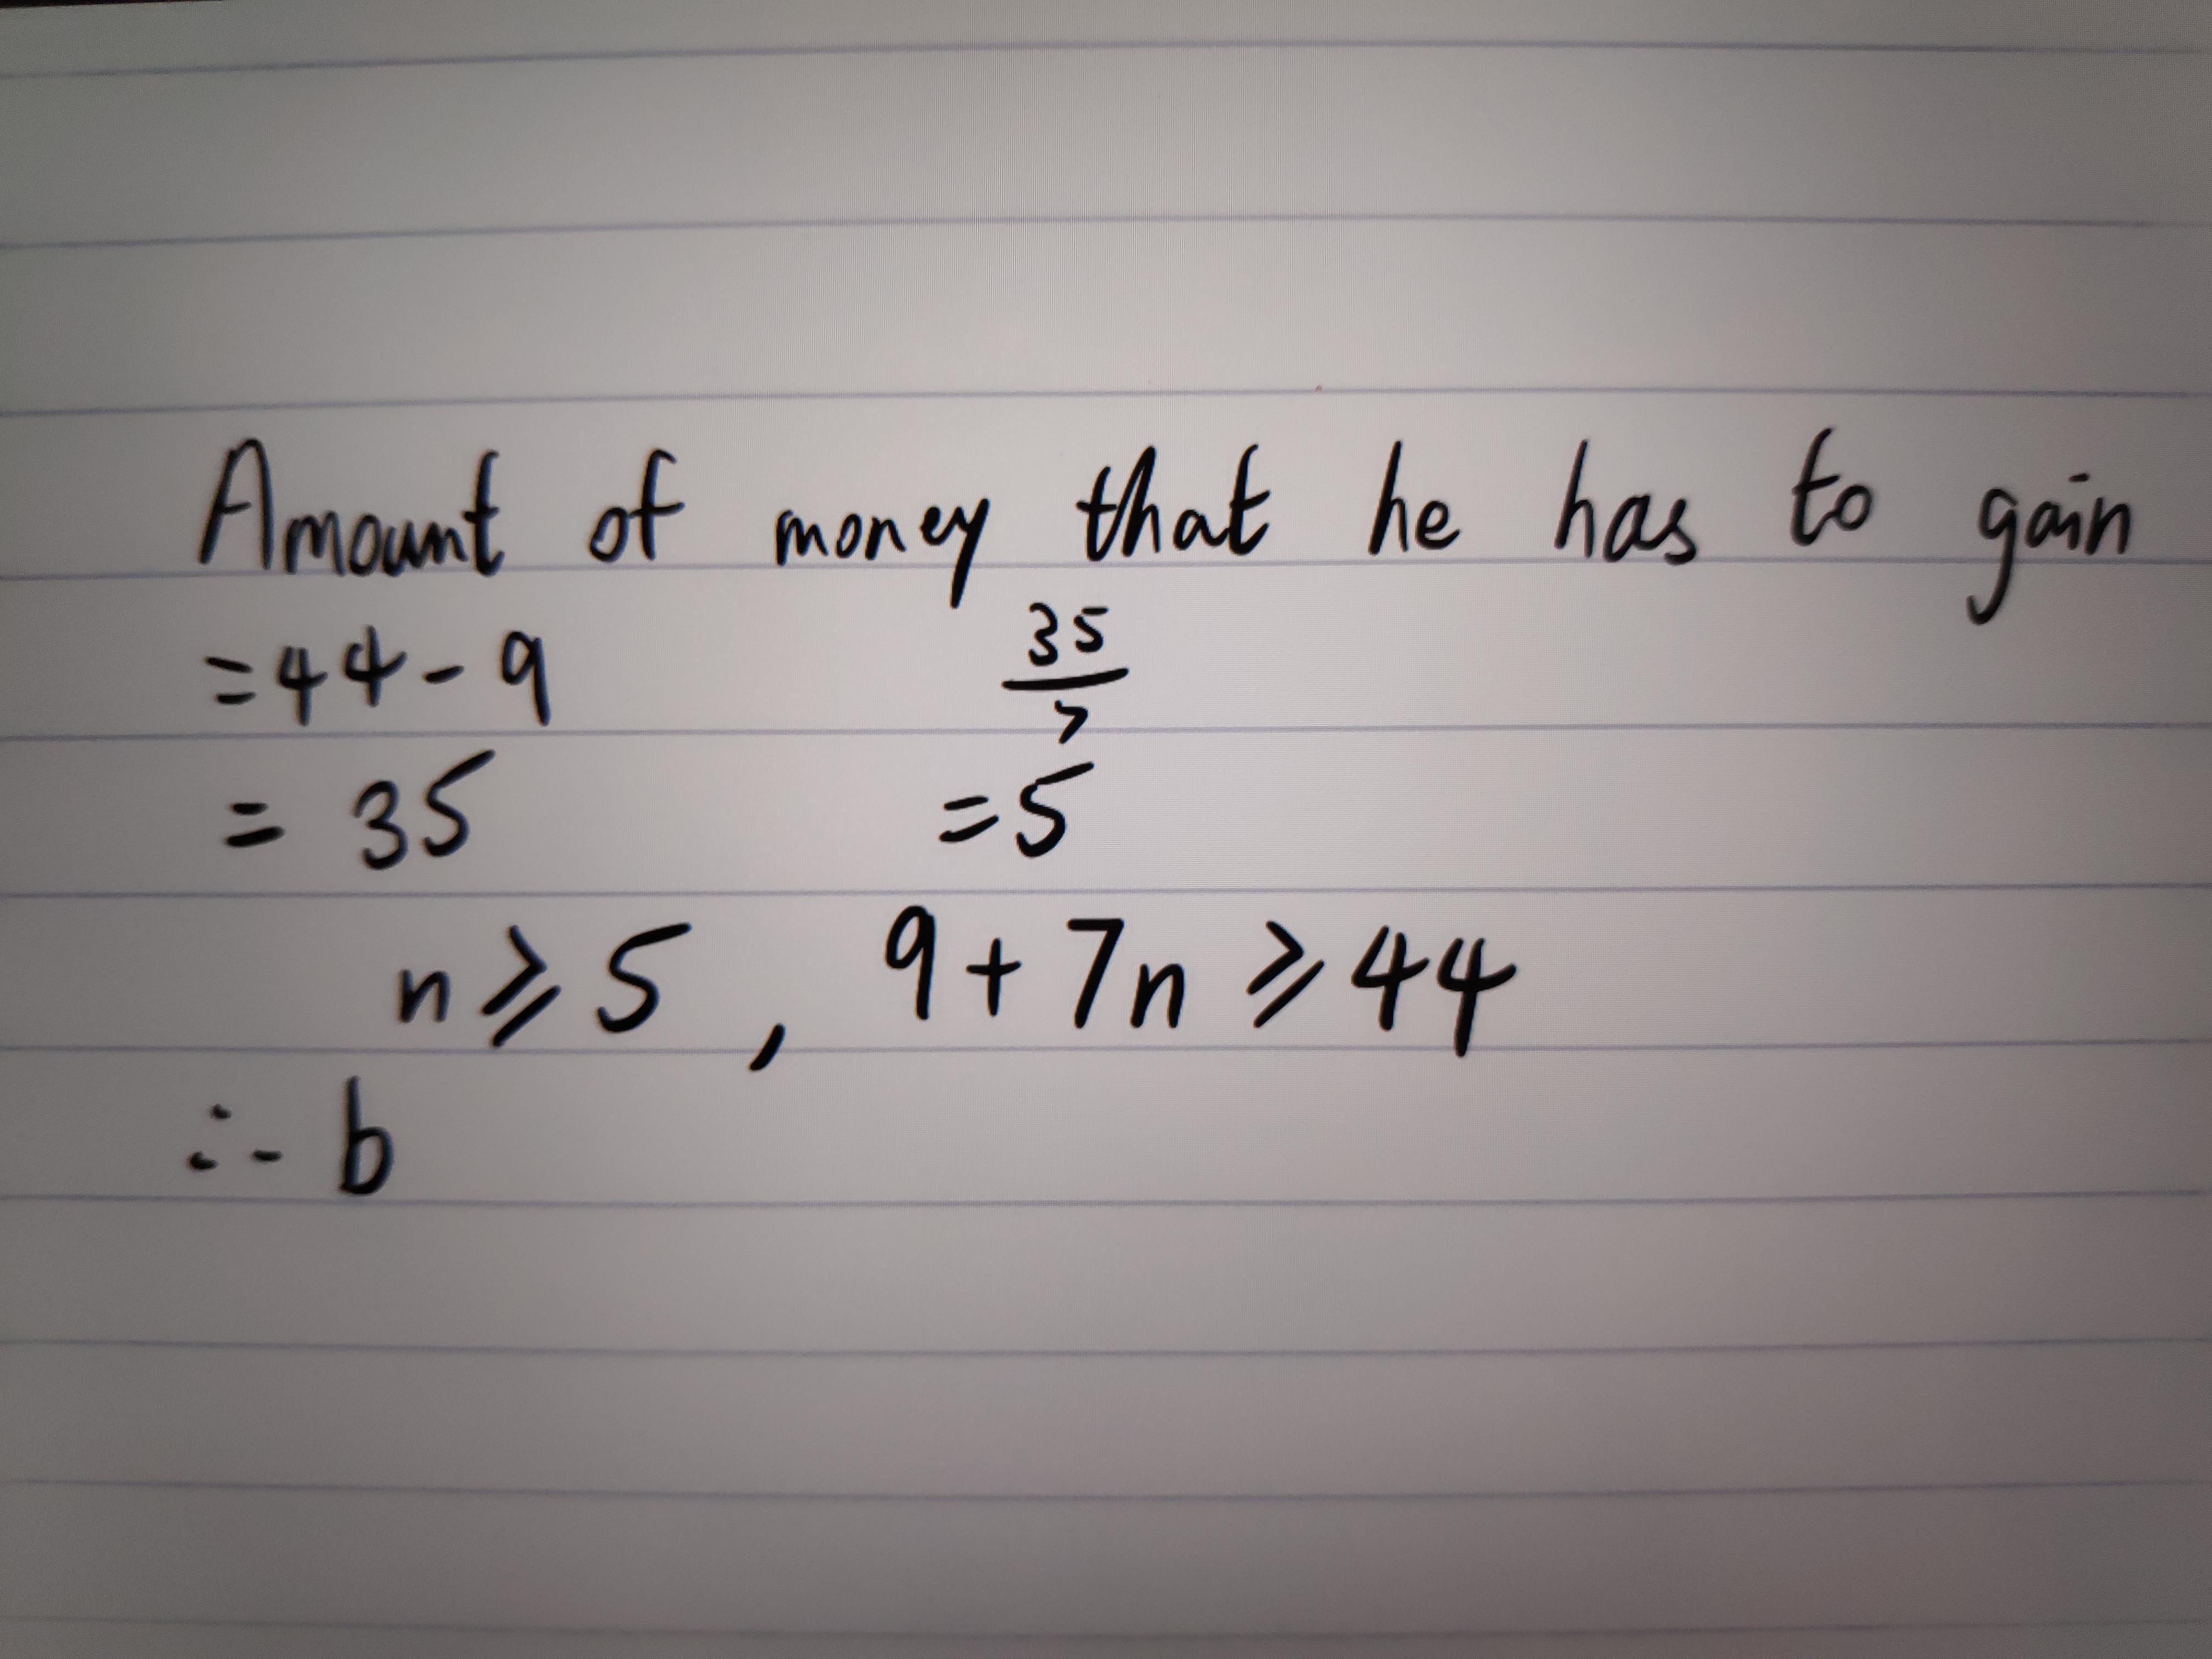 Amount of money that he has to gain
=44-9 35/7
= 35 =5
n⩾5, 9+7n⩾44
∴ b